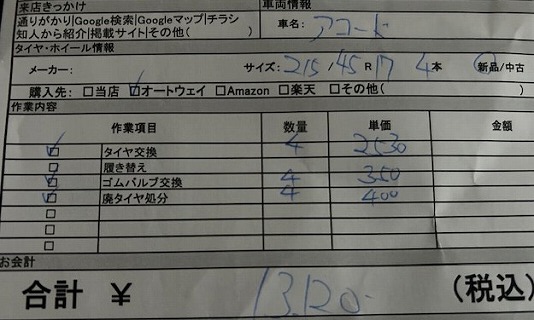 来店きっかけ 車両情報
通りがかり|Google検索|Googleマップ|チラシ
知人から紹介|掲載サイト|その他( )
車名: アコード
タイヤ・ホイール情報
メーカー: サイズ: 215/45R17 4本 新品/中古
購入先: □当店 ☑オートウェイ □Amazon □楽天 □その他( )
作業内容
作業項目 数量 単価 金額
☑ タイヤ交換 4 2530
□ 履き替え
☑ ゴムバルブ交換 4 350
☑ 廃タイヤ処分 4 400
□
□
□
お会計
合計 ¥ 13,120- (税込)